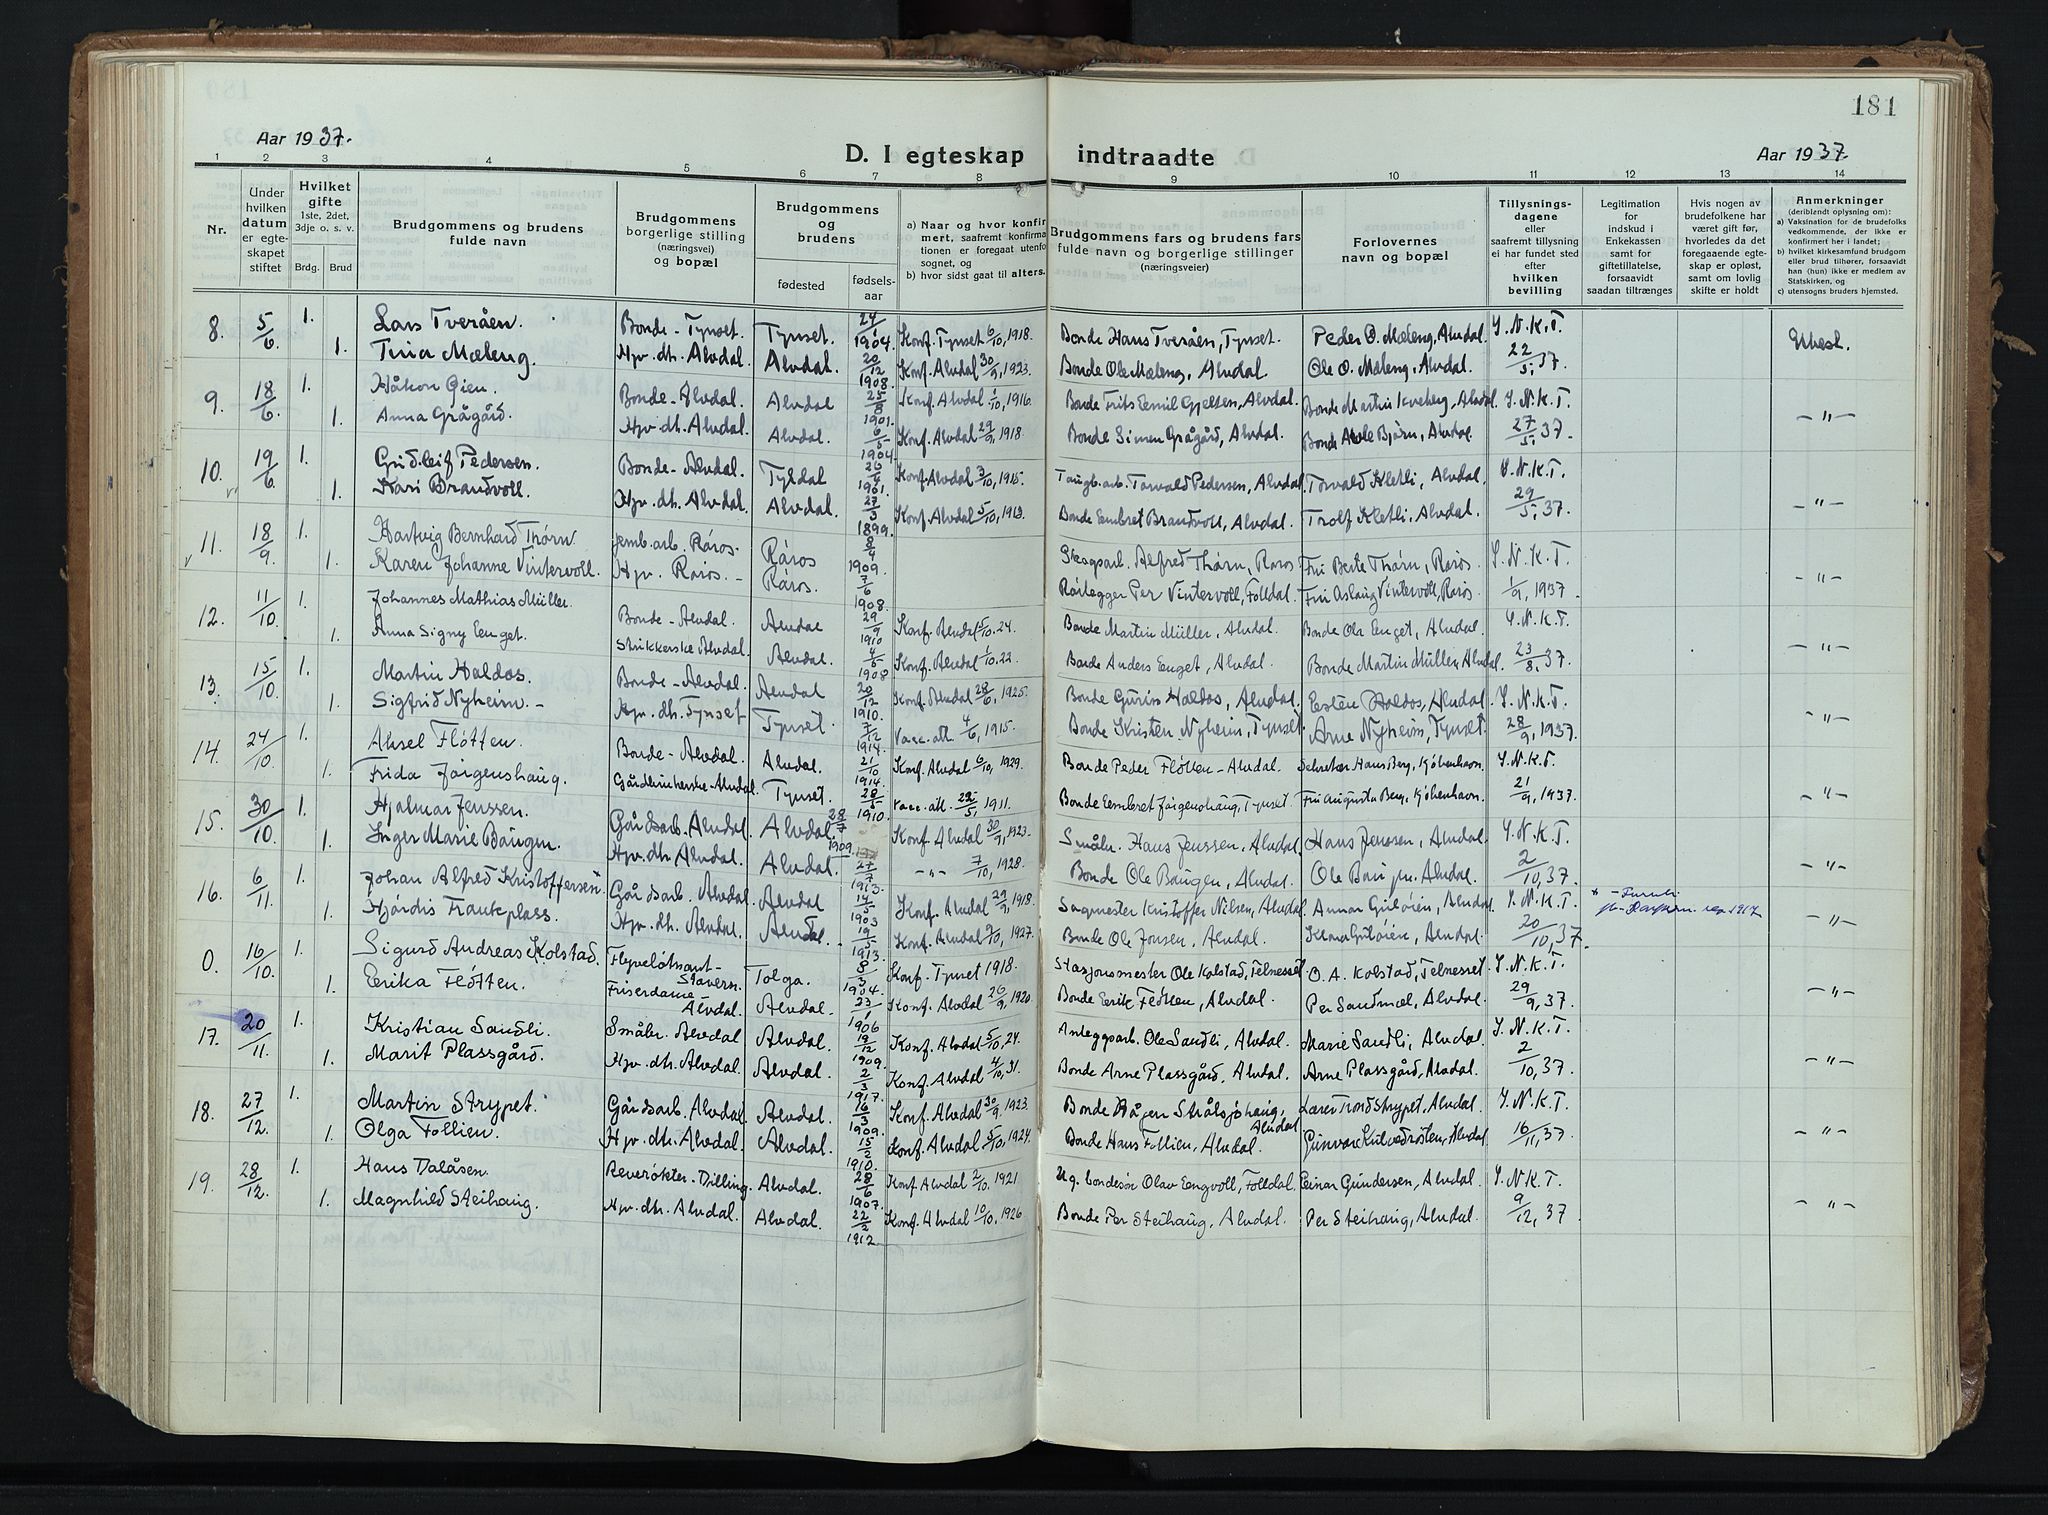 181
Aar 1937.
D. I egteskap indtraadte
Aar 1937.
1 2 3 4 5 6 7 8 9 10 11 12 13 14
Nr.
Under hvilken datum er egteskapet stiftet
Hvilket gifte 1ste, 2det, 3dje o. s. v.
Brdg. Brud
Brudgommens og brudens fulde navn
Brudgommens borgerlige stilling (næringsvei) og bopæl
Brudgommens og brudens
fødested
fødselsaar
a) Naar og hvor konfirmert, saafremt konfirmationen er foregaat utenfor sognet, og
b) hvor sidst gaat til alters.
Brudgommens fars og brudens fars fulde navn og borgerlige stillinger (næringsveier)
Forlovernes navn og bopæl
Tillysningsdagene eller saafremt tillysning ei har fundet sted efter hvilken bevilling
Legitimation for indskud i Enkekassen samt for giftetillatelse, forsaavidt saadan tiltrænges
Hvis nogen av brudefolkene har været gift før, hvorledes da det foregaaende egteskap er opløst, samt om lovlig skifte er holdt
Anmerkninger (deriblandt oplysning om):
a) Vaksination for de brudefolks vedkommende, der ikke er konfirmert her i landet;
b) hvilket kirkesamfund brudgom eller brud tilhører, forsaavidt han (hun) ikke er medlem av Statskirken, og
c) utensogns bruders hjemsted.
8. 5/6 1. Lars Tveråen. Bonde - Tynset. Tynset. 24/1 1904. Konf. Tynset 6/10, 1918. Bonde Hans Tveråen, Tynset. Peder O. Mæleng, Alvdal. Y. N. K. T.
1. Tina Mæleng. Hjv. dh. Alvdal. Alvdal. 20/12 1908. Konf. Alvdal 30/9, 1923. Bonde Ole Mæleng, Alvdal. Ole O. Mæleng, Alvdal. 22/5, 37.
9. 18/6 1. Håkon Gien. Bonde - Alvdal. Alvdal 25/8 1901. Konf. Alvdal 1/10, 1916. Bonde Frits Emil Gjelten, Alvdal. Bonde Martin Kveberg, Alvdal. Y. N. K. T. - " -
1. Anna Grågård. Hjv. dh. Alvdal. Alvdal. 6/5 1904. Konf. Alvdal 29/9, 1918. Bonde Simen Grågård, Alvdal. Bonde Bjørn, Alvdal. 27/5, 37.
10. 19/6 1. Gudleif Pedersen. Bonde - Alvdal. Tyldal 26/4 1901. Konf. Alvdal 3/10, 1915. Torvald Pedersen, Alvdal. Torvald Kletli, Alvdal. Y. N. K. T. - " -
1. Kari Brandvoll. Hjv. dh. Alvdal. Alvdal. 27/3 1899. Konf. Alvdal 5/10, 1913. Bonde Embret Brandvoll, Alvdal. Trolf Kletli, Alvdal. 29/5, 37.
11. 18/9 1. Hartvig Bernhard Thørn jernb.arb. Røros. Røros 8/4 1909. Skogsarb. Alfred Thørn, Røros Fru Berte Thørn, Røros. Y. N. K. T. - " -
1. Karen Johanne Vintervoll. Hjv. Røros. - Røros. 7/6 1908. Rørlegger Per Vintervoll, Folldal. Fru Aslaug Vintervoll, Røros 1/9, 1937
12. 11/10 1. Johannes Mathias Müller. Bonde - Alvdal. Alvdal 29/9 1910 Konf. Alvdal 5/10. 24. Bonde Martin Müller, Alvdal. Bonde Ola Enget, Alvdal. Y. N. K. T. - " -
1. Anna Signy Eenget. Strikkerske Alvdal. Alvdal. 4/5 1908 Konf. Alvdal 1/10. 22. Bonde Anders Eenget, Alvdal. Bonde Martin Müller, Alvdal. 23/8, 37.
13. 15/10 1. Martin Haldos. Bonde - Alvdal. Alvdal 20/12 1910. Konf. Alvdal 28/6, 1925. Bonde Gurim Haldos, Alvdal. Eesten Haldos, Alvdal. Y. N. K. T. - " -
1. Sigfrid Nyheim. - Hjv. dh. Tynset Tynset. 7/12 1914. Vacc. att. 4/6, 1915. Bonde Kristen Nyheim, Tynset. Arne Nyheim, Tynset. 28/9, 1937.
14. 24/10 1. Aksel Fløtten. Bonde - Alvdal. Alvdal. 21/10 1914. Konf. Alvdal 6/10, 1929. Bonde Peder Fløtten - Alvdal. Sekretær Hans Berg, Kjøbenhavn. Y. N. K. T. - " -
1. Frida Jørgenshaug. Alvdal. Tynset. 28/5 1910. Vacc. att. 22/5, 1911. Bonde Embret Jørgenshaug, Tynset. Fru Augusta Berg, Kjøbenhavn. 21/9, 1937.
15. 30/10 1. Hjalmar Jenssen. Gårdsarb. Alvdal. Alvdal. 28/7 1909. Konf. Alvdal 30/9, 1923. Småbr. Hans Jenssen, Alvdal. Hans Jenssen, Alvdal. Y. N. K. T. - " -
1. Inger Marie Baugen. Hjv. dh. Alvdal. Alvdal. 27/7 1913. - " - 7/10, 1928. Bonde Ole Baugen, Alvdal. Ole Bau jr. Alvdal. 2/10, 37.
16. 6/11 1. Johan Alfred Kristoffersen Gårdsarb. Alvdal. Alvdal 14/5 1903 Konf. Alvdal 29/9, 1918. Sagmester Kristoffer Nilsen, Alvdal. Guløien, Alvdal. Y. N. K. T. - " -
1. Hjördis Trauteplass. Hjv. dh. Alvdal. Alvdal. 19/5 1913. Konf. Alvdal 9/10, 1927. Bonde Ole Jonsen, Alvdal. Klara Guløien, Alvdal. 20/10, 37.
0. 16/10 1. Sigurd Andreas Kolstad. Flyveløitnant - Stavern. Tolga. 8/3 1904. Konf. Tynset 1918. Stasjonsmester Ole Kolstad, Telneset O. A. Kolstad, Telneset. Y. N. K. T. - " -
1. Erika Fløtten. Friserdame - Alvdal. Alvdal. 23/1 1906 Konf. Alvdal 26/9, 1920. Bonde Eerik Fløtten, Alvdal. Per Sandmæl, Alvdal. 29/9, 37.
17. 20/11. 1. Kristian Sandli. Småbr. Alvdal Alvdal. 19/12 1909. Konf. Alvdal 5/10, 24. Anleggsarb. Ole Sandli, Alvdal. Marie Sandli, Alvdal. Y. N. K. T. - " -
1. Marit Plassgård. Hjv. dh. Alvdal. Alvdal. 2/3 1917. Konf. Alvdal 4/10, 31. Bonde Arne Plassgård, Alvdal. Arne Plassgård, Alvdal. 2/10, 37.
18. 27/12 1. Martin Strypet. Gårdsarb. Alvdal Alvdal. 16/3 1909. Konf. Alvdal 30/9. 1923. Bonde Hågen Strålsjøhaug, Alvdal Lærer Trond Strypet, Alvdal. Y. N. K. T. - " -
1. Olga Follien. Hjv. dh. Alvdal. Alvdal. 15/2 1910. Konf. Alvdal 5/10, 1924. Bonde Hans Follien, Alvdal. Gunvor Alvdal. 16/11, 37
19. 28/12. 1. Hans Dalåsen. Dilling. Alvdal. 28/6 1907. Konf. Alvdal 2/10. 1921. Ug. bondesøn Olav Eengvoll, Folldal. Einar Gundersen, Alvdal. Y. N. K. T. - " -
1. Magnhild Steihaug. Hjv. dh. Alvdal. Alvdal. 22/2 1912 Konf. Alvdal 10/10, 1926 Bonde Per Steihaug, Alvdal. Per Steihaug, Alvdal. 9/12, 37